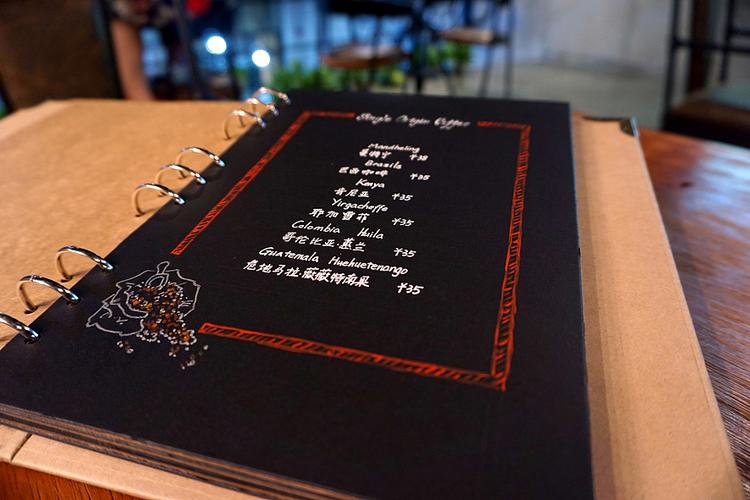 Single Origin Coffee
Mandheling
曼特宁 ¥38
Brazils
巴西咖啡 ¥35
Kenya
肯尼亚 ¥35
Yirgacheffe
耶加雪菲 ¥35
Colombia Huila
哥伦比亚·蕙兰 ¥35
Guatemala Huehuetenango
危地马拉·薇薇特南果 ¥35